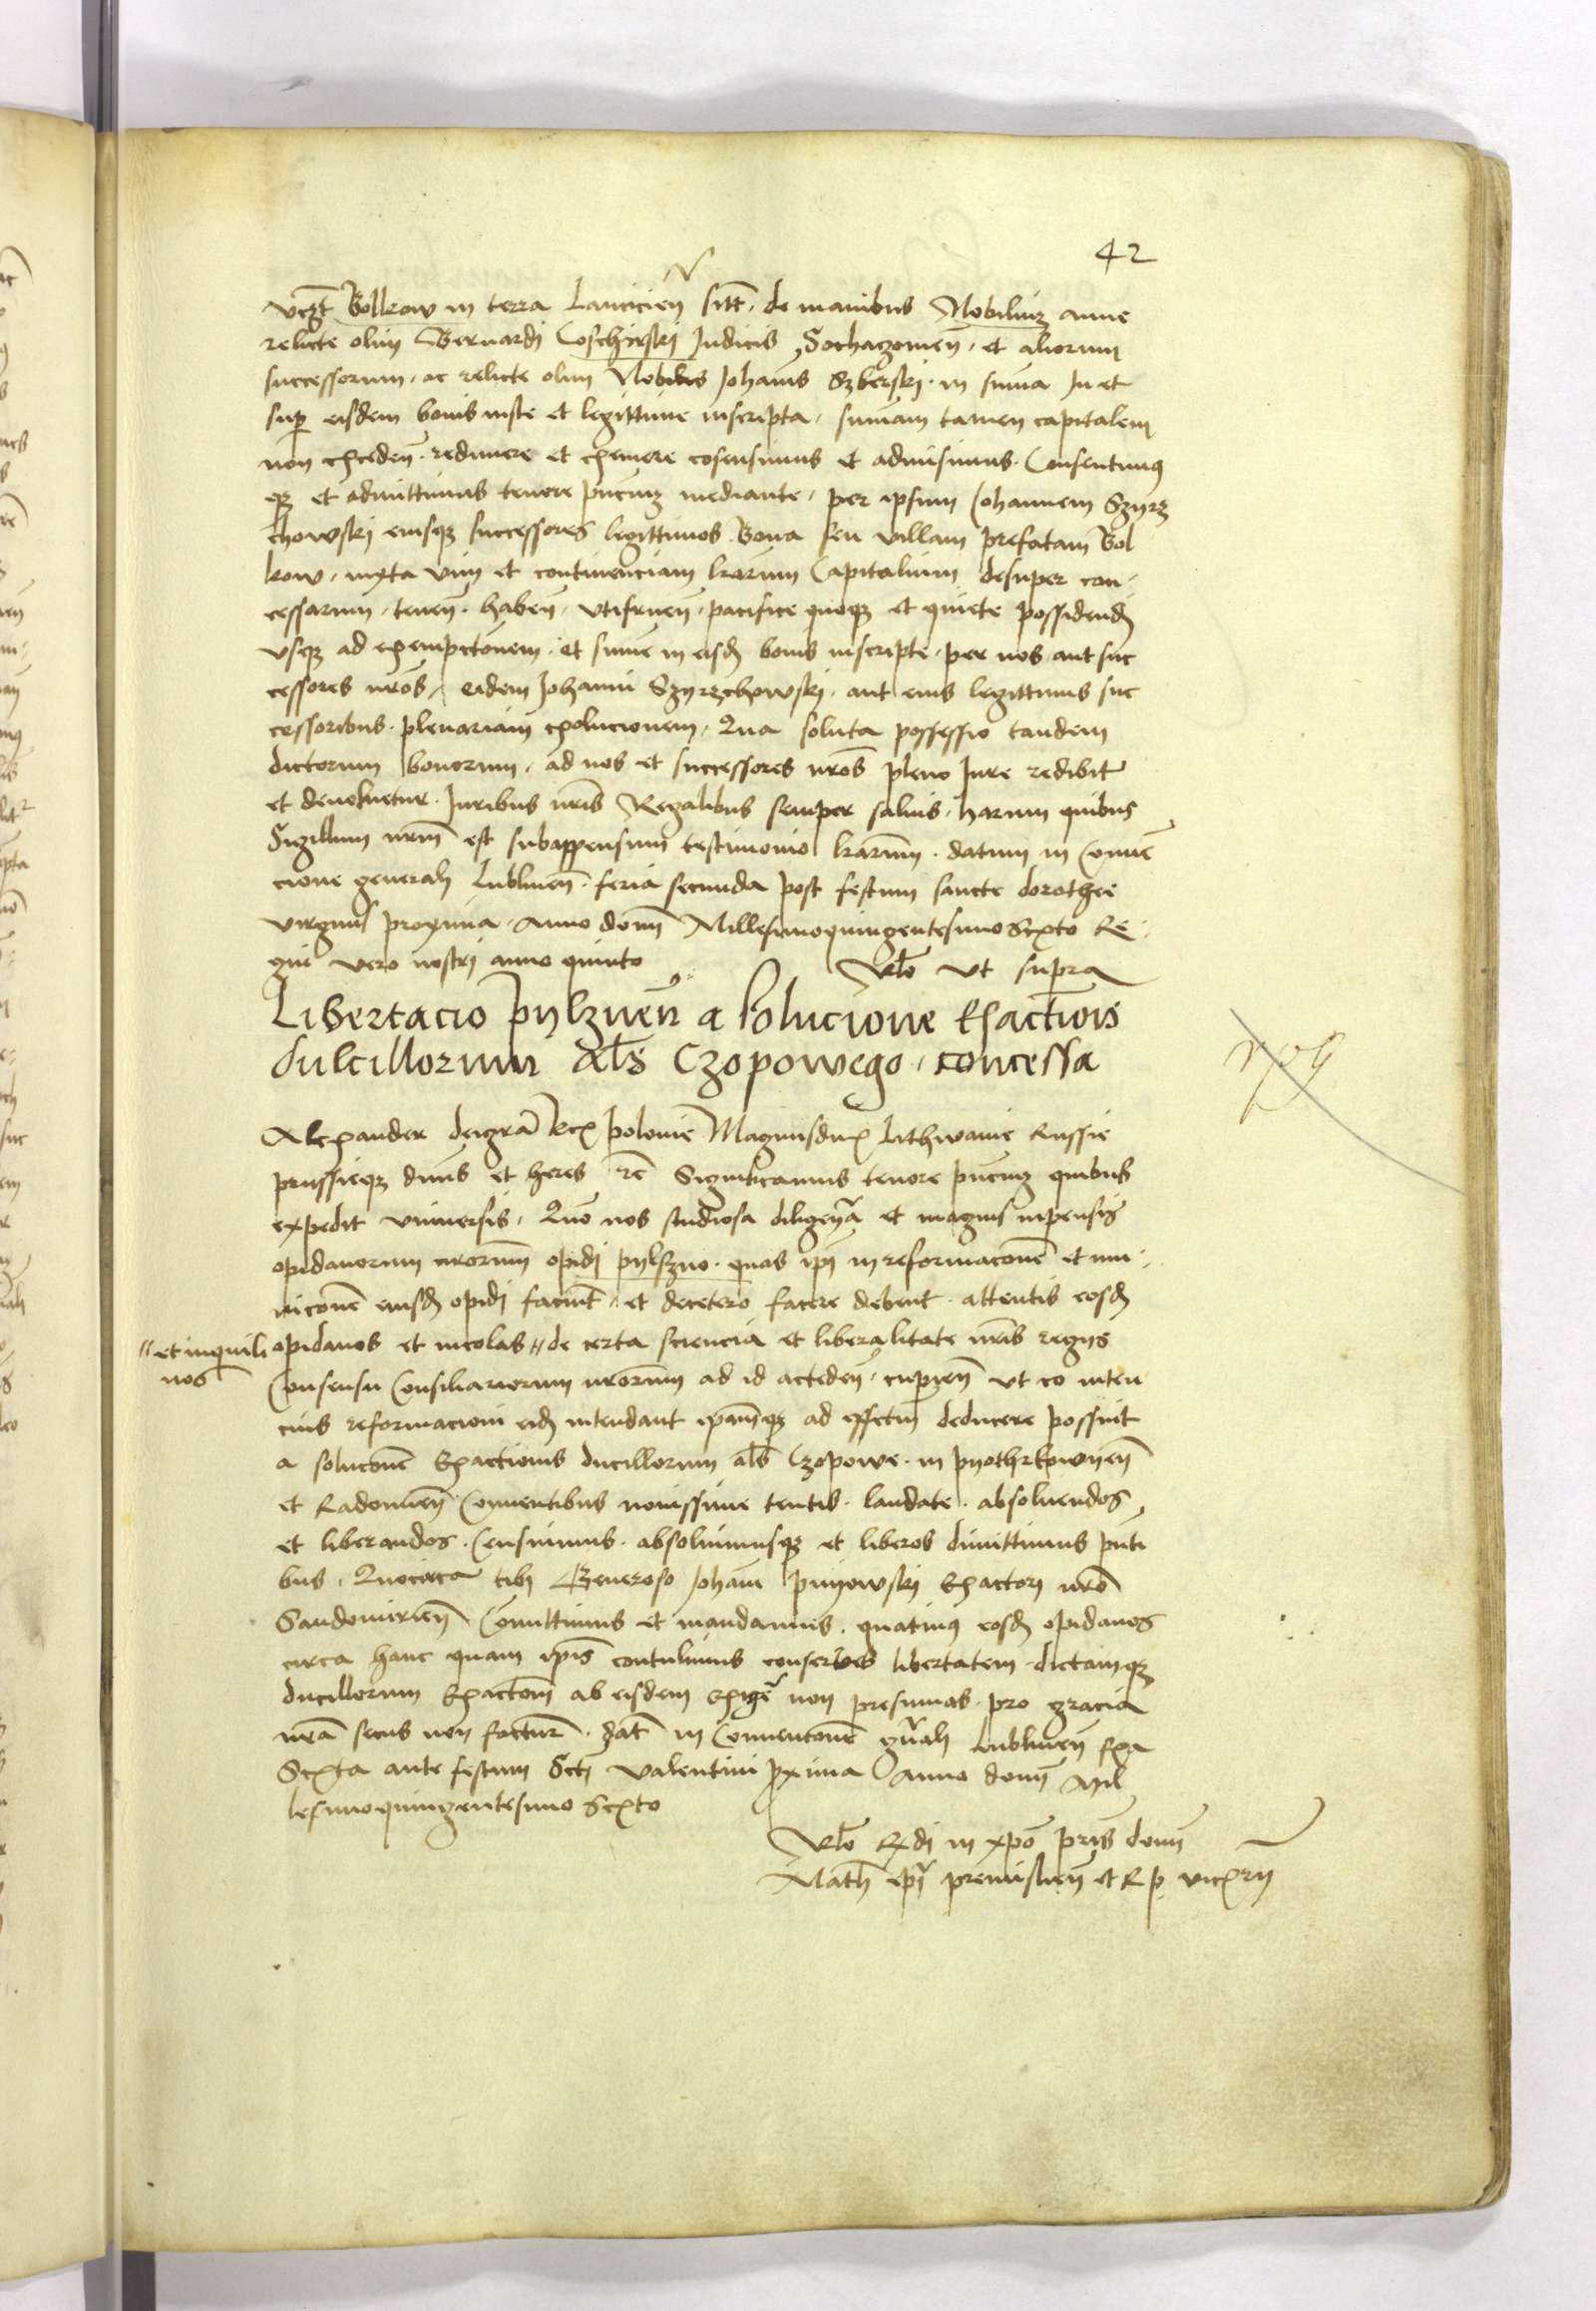 42
vczt Bolkow in terra Lancicien sitt. de manibus Nobilium anne
relicte olim Bernardi Coschirski Judicis Sochazomen. et aliorum
successorum. ac relicte olim Nobilis Johanis Szberski. in suma In et
sup eisdem bonis iuste et legittime inscripta. sumam tamen capitalem
non exceden. redimere et eximere cosensimus et admisimus. Consentimus
qz et admittimus tenore pncium mediante. per ipsum Johannem Szyrz
chowski eiusqz successores legittimos. Bona seu villam prefatam Bol
kow. iuxta vim et continenciam lrarum Capitalium desuper con
cessarum. tenen. haben. vtifruen. pacifice quoqz et quiete possidend
vsqz ad exempcionem. et sume in eisd bonis inscripte. per nos aut suc
cessores nros. eidem Johanni Szyrzchowski. aut eius legittimis suc
cessoribus. plenariam exolucionem. Qua soluta possessio tandem
dictorum bonorum. ad nos et successores nros pleno Jure redibit
et deuoluetur. Juribus nris Regalibus semper saluis. harum quibus
Sigillum nrm est subappensum testimonio lrarum. datum in Conuen
cione generali Lublinen. feria secunda post festum sancte dorothee
virginis proxima. Anno domi Millesimoquingentesimo Sexto Re
gni vero nostri anno quinto
Rlo vt supra
Libertacio pylznen a solucione Exactiois
ducillorum als Czopowego. concessa
Alexander deigra Rex polonie Magnusdux Lithwanie Russie
prussieqz dnus et heres rc Significamus tenore pncium quibus
expedit vniuersis. Quo nos studiosa diligencia et magnis inpensis
opidanorum nrorum opidi pylszno. quas ipi in reformacone et mu
nicone eiusd opidi faciunt. et decetero facere debent. attentis eosd
opidanos et incolas // de certa sciencia et liberalitate nris regiis
// et inquili
nos
Consensu Consiliariorum nrorum ad id acceden. cupien vt eo inten
cius reformacioni eid intendant ipamqz ad effectum deducere possint
a solucone Exactionis ducillorum als Czopowe. in pyothrkowien
et Radomien Conuentibus nouissime tentis. laudate. absoluendos
et liberandos. Censuimus. absoluimusqz et liberos dimittimus pnti
bus. Quocirca tibi Generoso Johani pnyowski Exactori nro
Sandomirien Comittimus et mandamus. quatinus eosd opidanos
circa hanc quam ipis contulimus conserues libertatem. dictamqz
ducillorum Exactiom ab eisdem exige non presumas. pro gracia
nra secus non factur. dat in Conuencione gnali Lublinen fra
Sexta ante festum Scti Valentini pxima Anno domi Mil
lesimoquingentesimo Sexto
Rlo Rdi in xpo pris domi
Math epi premislien et R p vicxrii